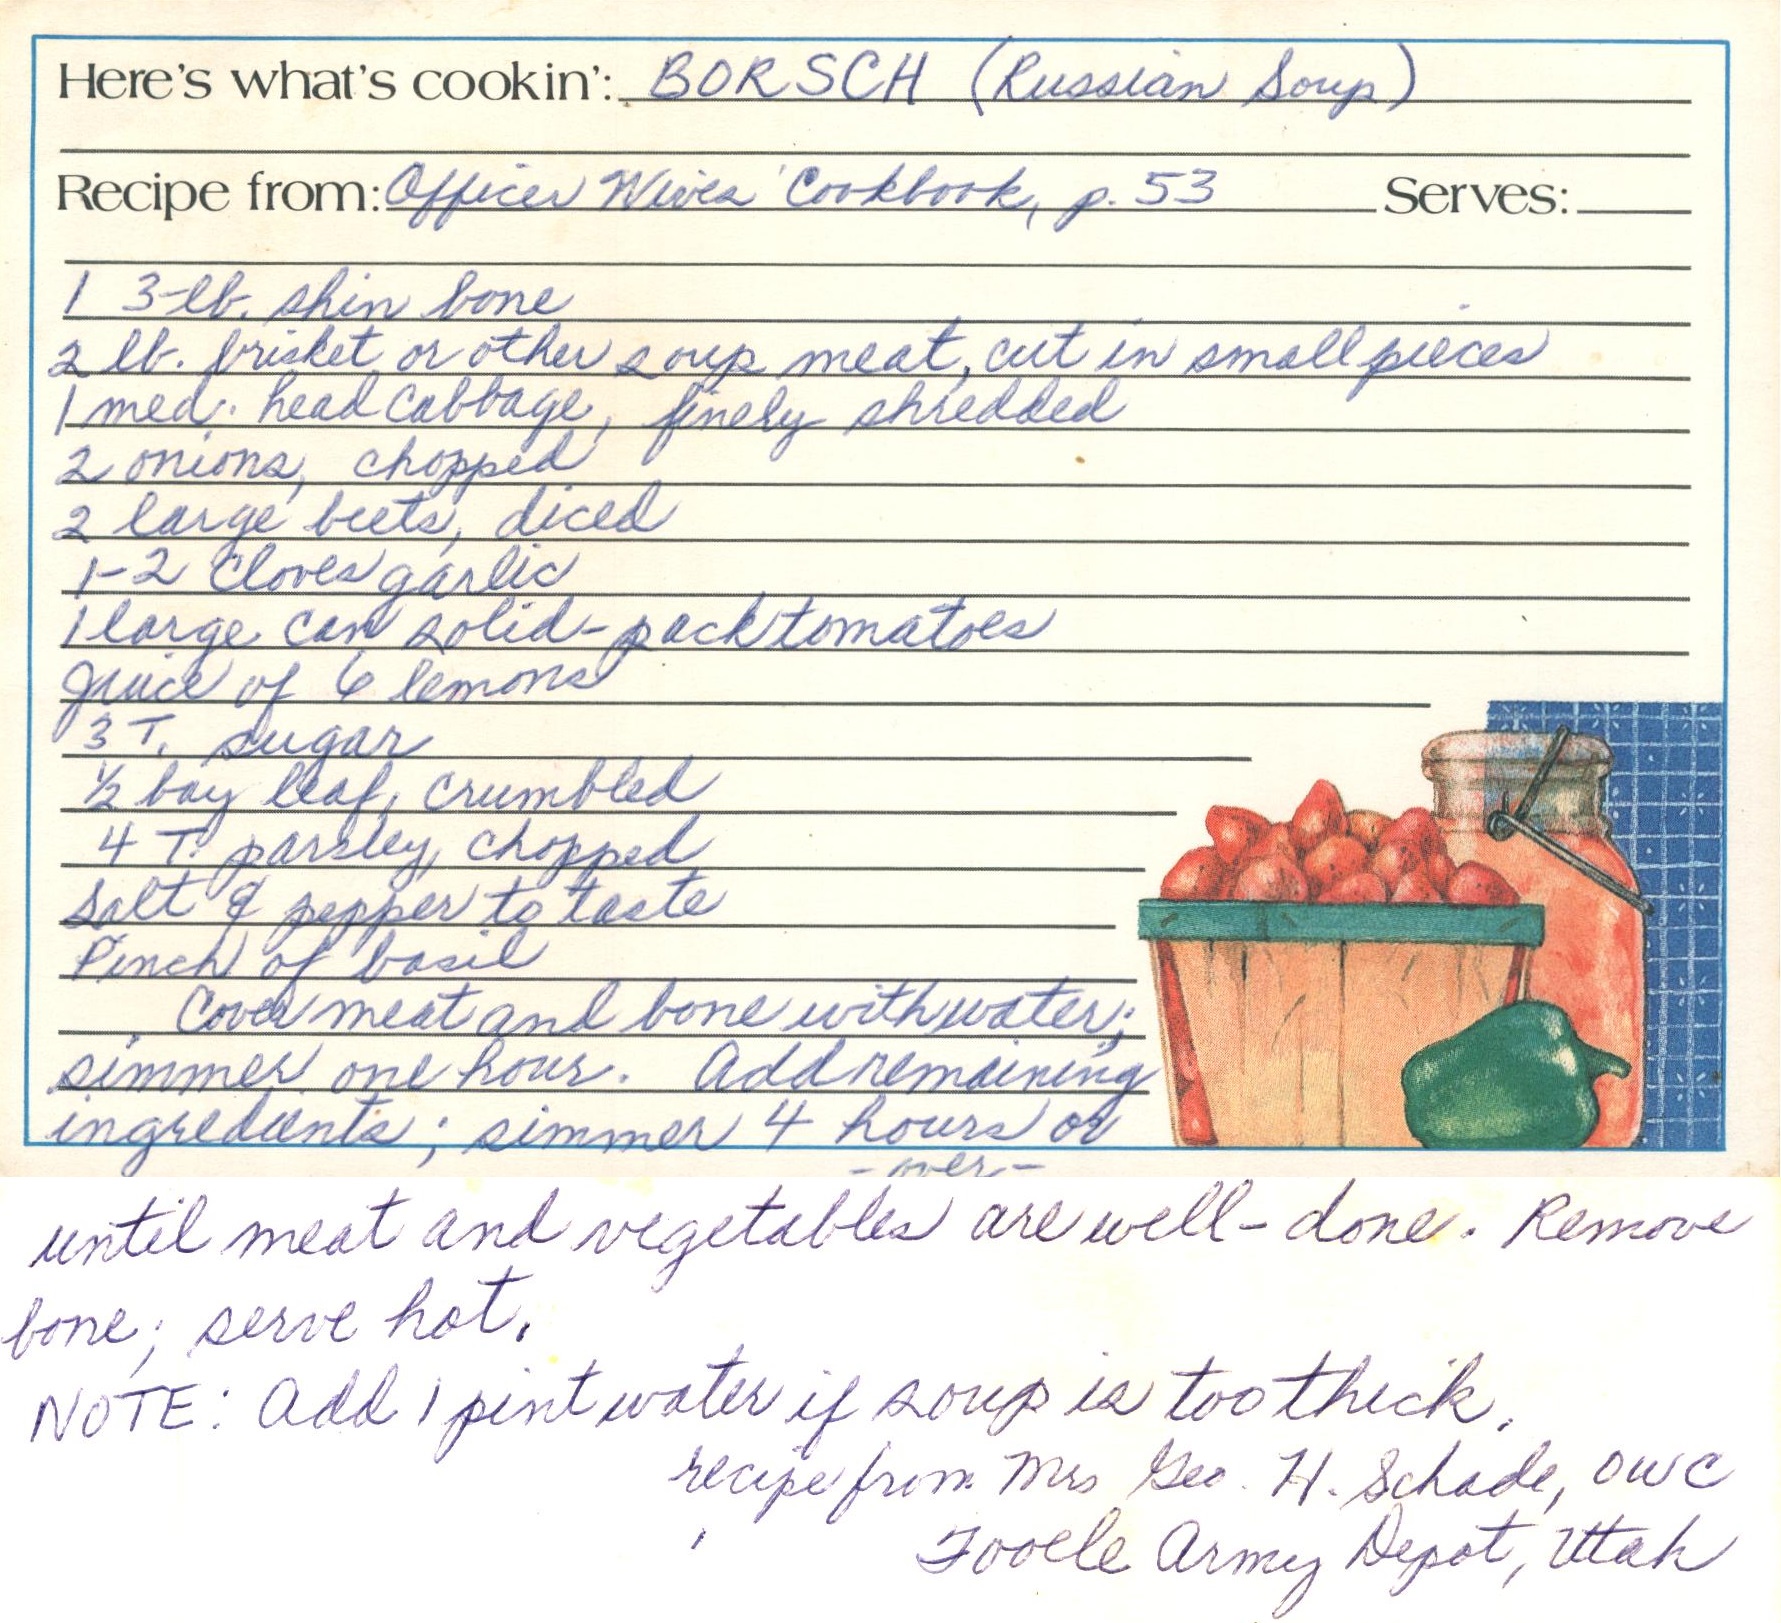 Here's what's cookin': BORSCH (Russian Soup)
Recipe from: Officer Wives' Cookbook, p. 53 Serves:
1 3-lb. shin bone
2 lb. brisket or other soup meat, cut in small pieces
1 med. head cabbage, finely shredded
2 onions, chopped
2 large beets, diced
1-2 cloves garlic
1 large can solid-pack tomatoes
Juice of 6 lemons
3 T. sugar
1/2 bay leaf, crumbled
4 T. parsley, chopped
Salt & pepper to taste
Pinch of basil
Cover meat and bone with water;
simmer one hour. Add remaining
ingredients; simmer 4 hours or
-over-
until meat and vegetables are well-done. Remove
bone; serve hot.
NOTE: Add 1 pint water if soup is too thick.
recipe from Mrs Geo. H. Schade, OWC
Tooele Army Depot, Utah